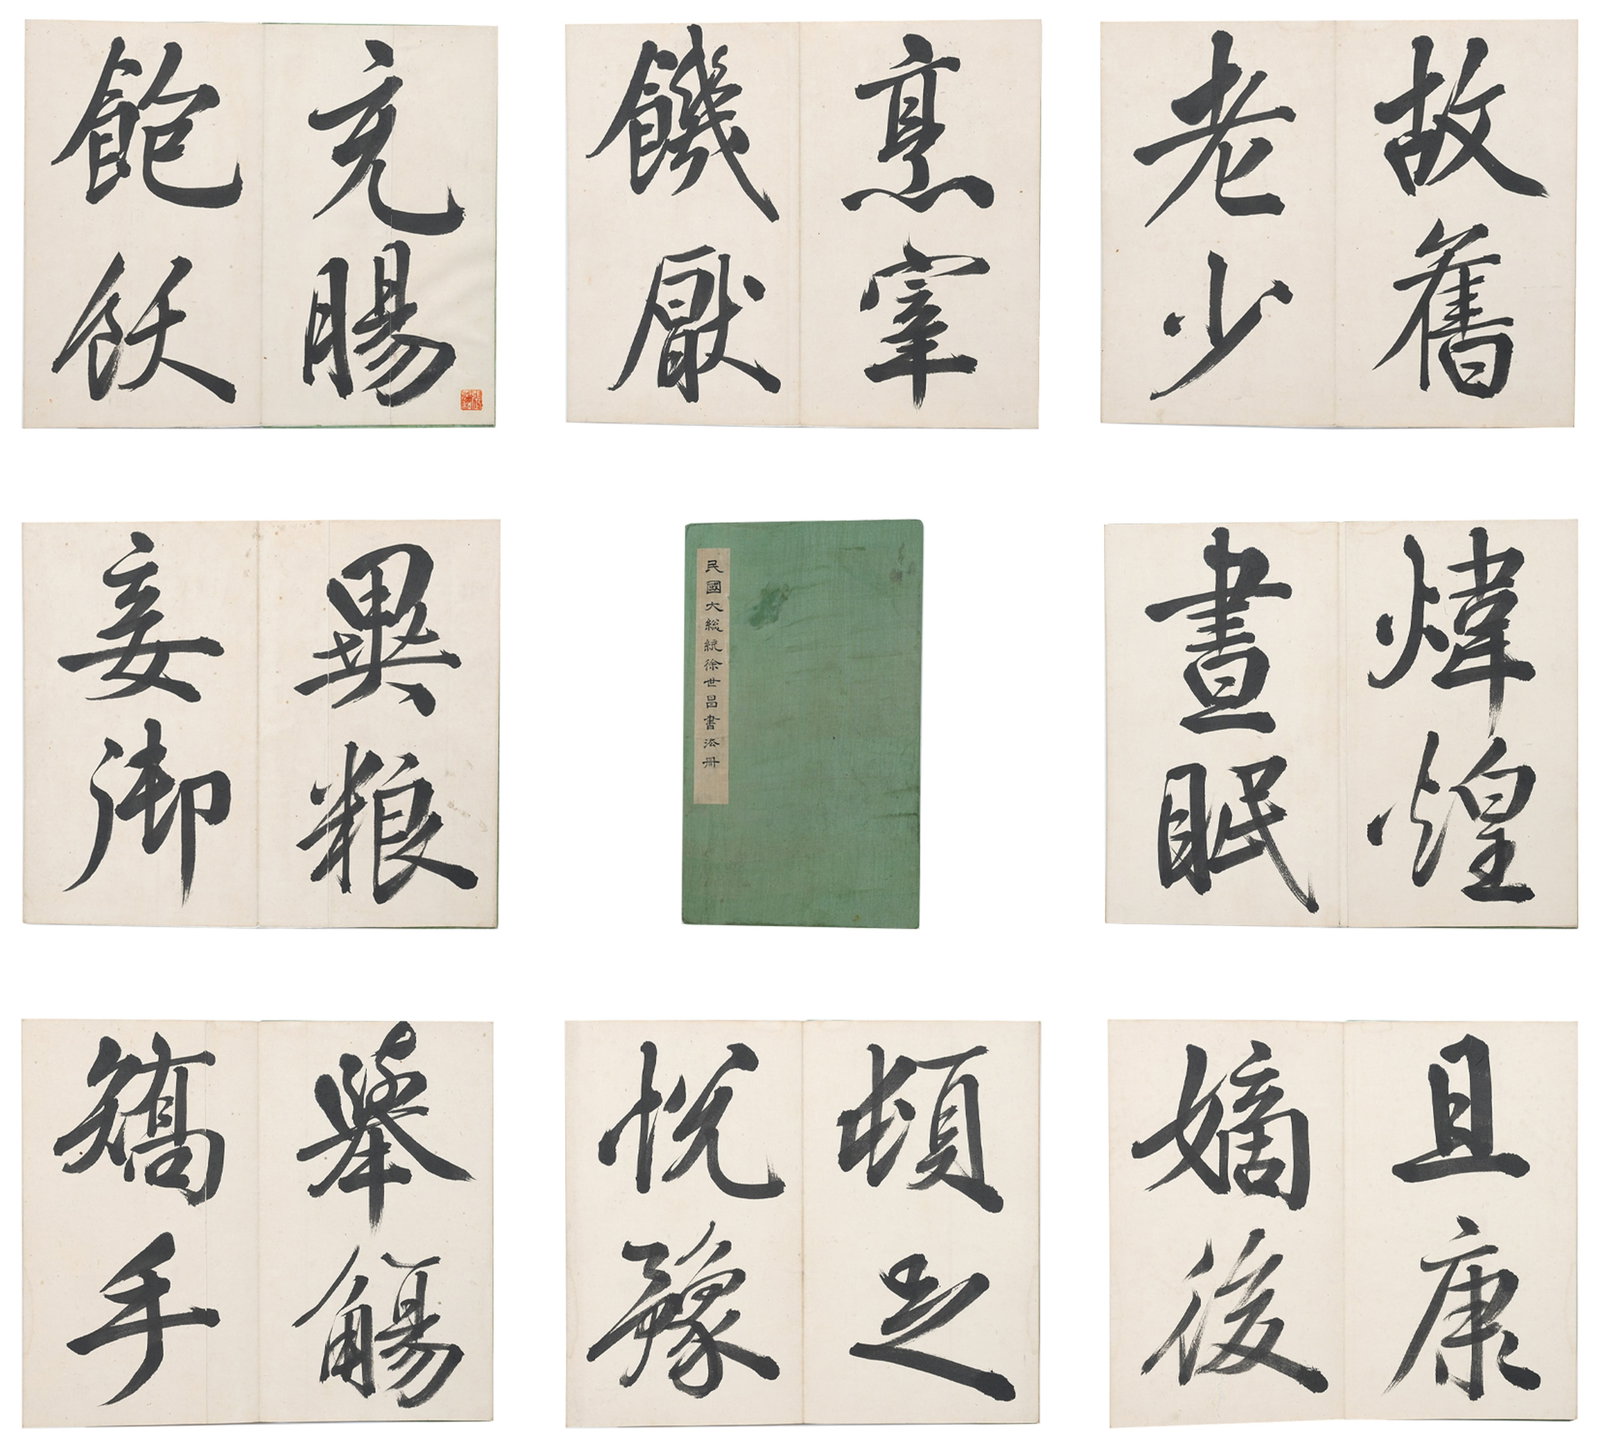 充腸
飽飫
烹宰
饑厭
故舊
老少
異粮
妾御
民國大總統徐世昌書法冊
煒煌
晝眠
舉觴
矯手
頓足
悅豫
且康
嫡後